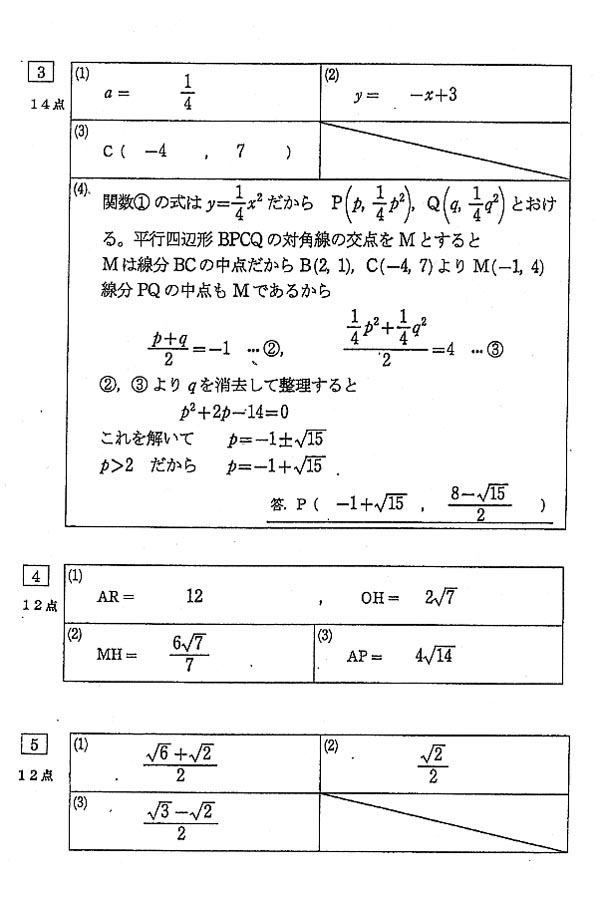 3
14点
(1) a = 1/4
(2) y = −x+3
(3) C ( −4 , 7 )
(4) 関数① の式は y=1/4x² だから P(p, 1/4p²), Q(q, 1/4q²) とおけ
る。平行四辺形 BPCQ の対角線の交点を M とすると
M は線分 BC の中点だから B(2, 1), C(−4, 7) より M(−1, 4)
線分 PQ の中点も M であるから
(p+q)/2=−1 …②, (1/4p²+1/4q²)/2=4 …③
②, ③ より q を消去して整理すると
p²+2p−14=0
これを解いて p=−1±√15
p>2 だから p=−1+√15
答. P ( −1+√15 , (8−√15)/2 )
4
12点
(1) AR = 12 , OH = 2√7
(2) MH = 6√7/7
(3) AP = 4√14
5
12点
(1) (√6+√2)/2
(2) √2/2
(3) (√3−√2)/2